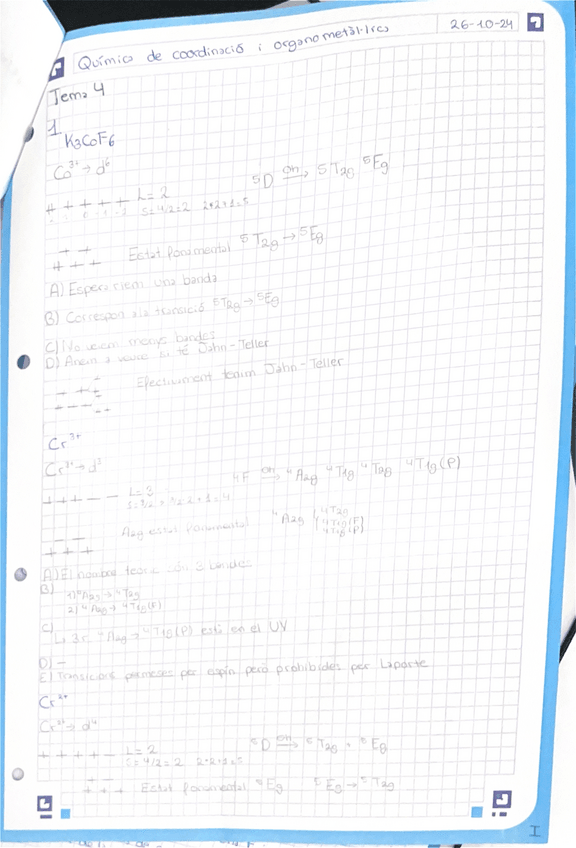 Química de coordinació i organometàl·lics 26-10-24
Tema 4
1
K3CoF6
Co³⁺ → d⁶
+ + + + + L=2 ⁵D Oh→ ⁵T2g ⁵Eg
S=4/2=2 2·2+1=5
Estat fonamental ⁵T2g → ⁵Eg
A) Esperariem una banda
B) Correspon a la transició ⁵T2g → ⁵Eg
C) No veiem menys bandes
D) Anem a veure si té Jahn-Teller
Efectivament tenim Jahn-Teller
Cr³⁺
Cr³⁺ → d³
+ + + – – L=3 ⁴F Oh→ ⁴A2g ⁴T1g ⁴T2g ⁴T1g(P)
S=3/2
A2g estat fonamental ⁴A2g ⁴T2g
⁴T1g(F)
⁴T1g(P)
A) El nombre teòric són 3 bandes
B) 1) ⁴A2g → ⁴T2g
2) ⁴A2g → ⁴T1g(F)
C)
↳ 3r. ⁴A2g → ⁴T1g(P) està en el UV
D) –
E) Transicions permeses per espín però prohibides per Laporte
Cr²⁺
Cr²⁺ → d⁴
+ + + + – L=2 ⁵D Oh→ ⁵T2g + ⁵Eg
S=4/2=2 2·2+1=5
Estat fonamental ⁵Eg ⁵Eg → ⁵T2g
I